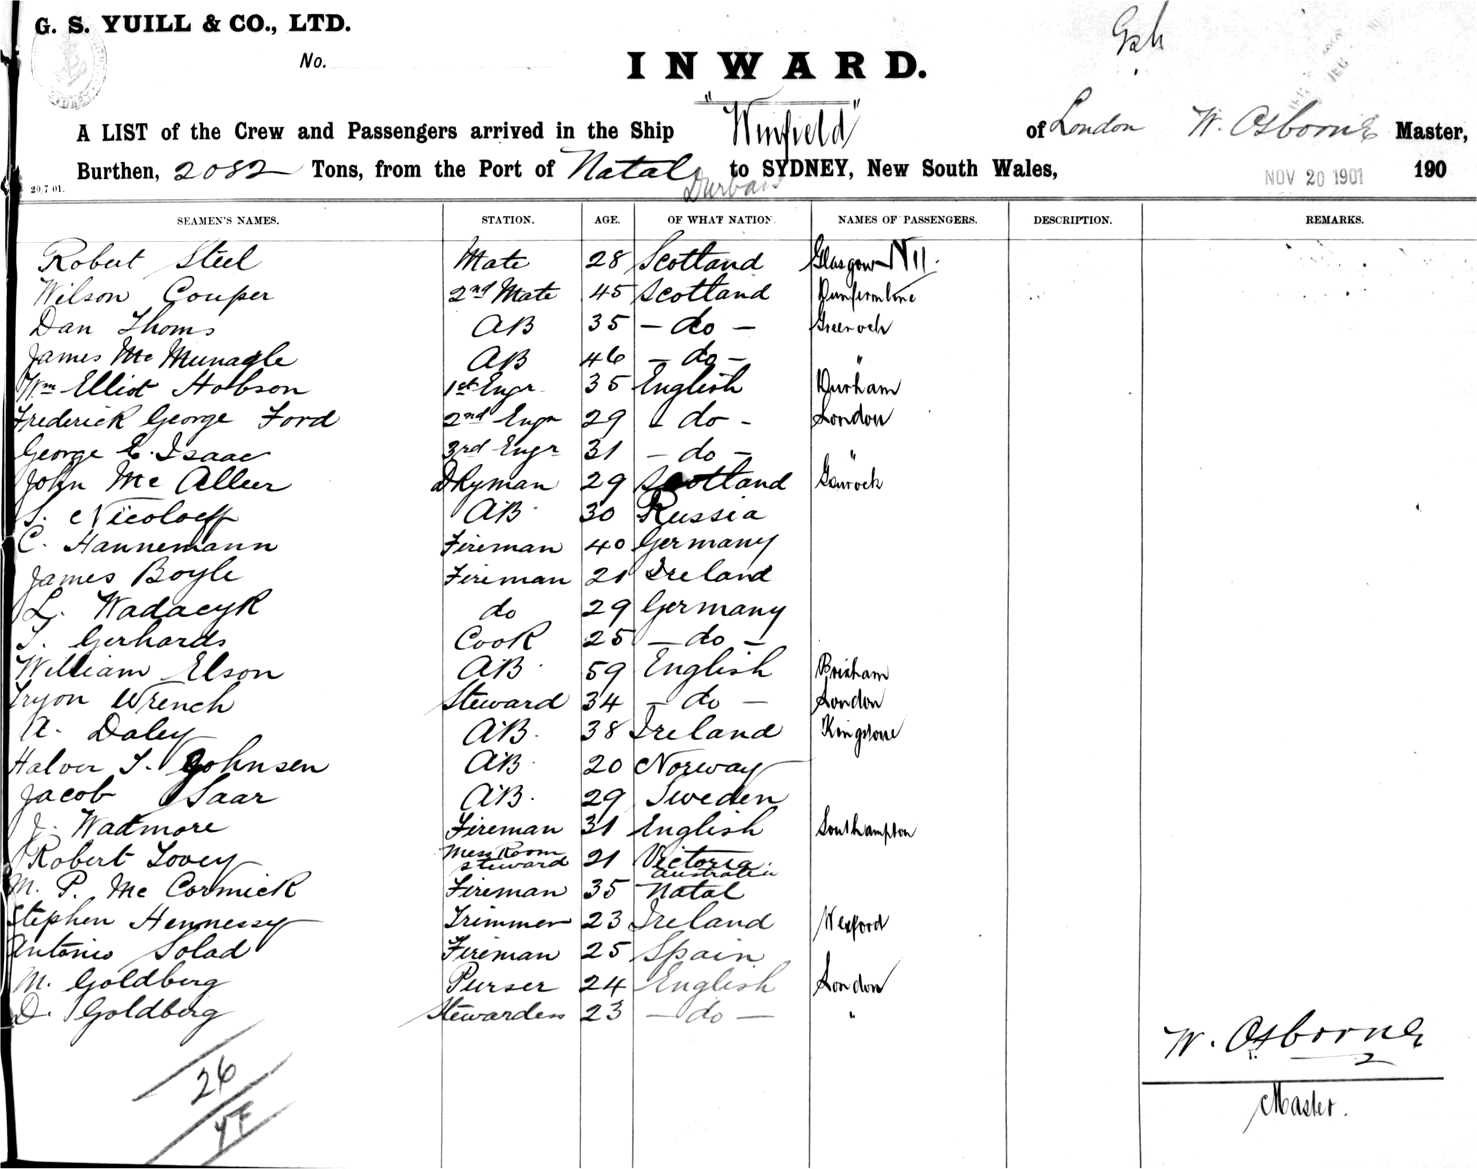 G. S. YUILL & CO., LTD.
No.
INWARD.
A LIST of the Crew and Passengers arrived in the Ship "Winfield" of London W. Osborne Master,
Burthen, 2082 Tons, from the Port of Natal to SYDNEY, New South Wales, NOV 20 1901 190
Durban
20.7.01.
SEAMEN'S NAMES. STATION. AGE. OF WHAT NATION. NAMES OF PASSENGERS. DESCRIPTION. REMARKS.
Robert Steel Mate 28 Scotland Glasgow Nil.
Wilson Couper 2nd Mate 45 Scotland Dunfermline
Dan Thoms AB 35 - do - Greenock
James Mc Munagle AB 46 - do - "
Wm Elliot Hobson 1st Engr. 35 English Durham
Frederick George Ford 2nd Engr 29 - do - London
George E. Isaac 3rd Engr 31 - do - "
John Mc Alleer Dkyman 29 Scotland Gourock
S. Nicoloeff AB 30 Russia
C. Hannemann Fireman 40 Germany
James Boyle Fireman 21 Ireland
L. Wadacyk do 29 Germany
Gerhards Cook 25 - do -
William Elson AB 59 English Brixham
Tryon Wrench Steward 34 - do - London
A. Daley AB. 38 Ireland Kingstone
Halver T. Johnsen AB 20 Norway
Jacob Saar AB. 29 Sweden
J. Watmore Fireman 31 English Southampton
Robert Tovey Mess Room Steward 21 Victoria Australia
M. P. Mc Cormick Fireman 35 Natal
Stephen Hennessy Trimmer 23 Ireland Wexford
Antonio Solad Fireman 25 Spain
M. Goldberg Purser 24 English London
D. Goldberg Stewardess 23 - do - "
W. Osborne
Master.
26